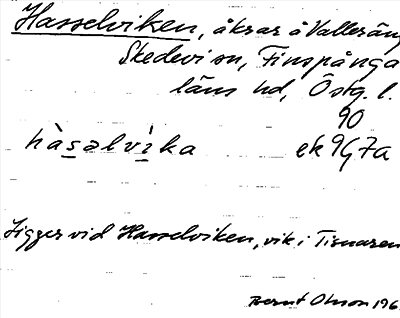 Hasselviken, åkrar å Valleräng
Skedevi sn, Finspånga
läns hd, Östg. l.
90
hàsalvìka ek 9G7a
Ligger vid Hasselviken, vik i Tisnaren
Bernt Olsson 196